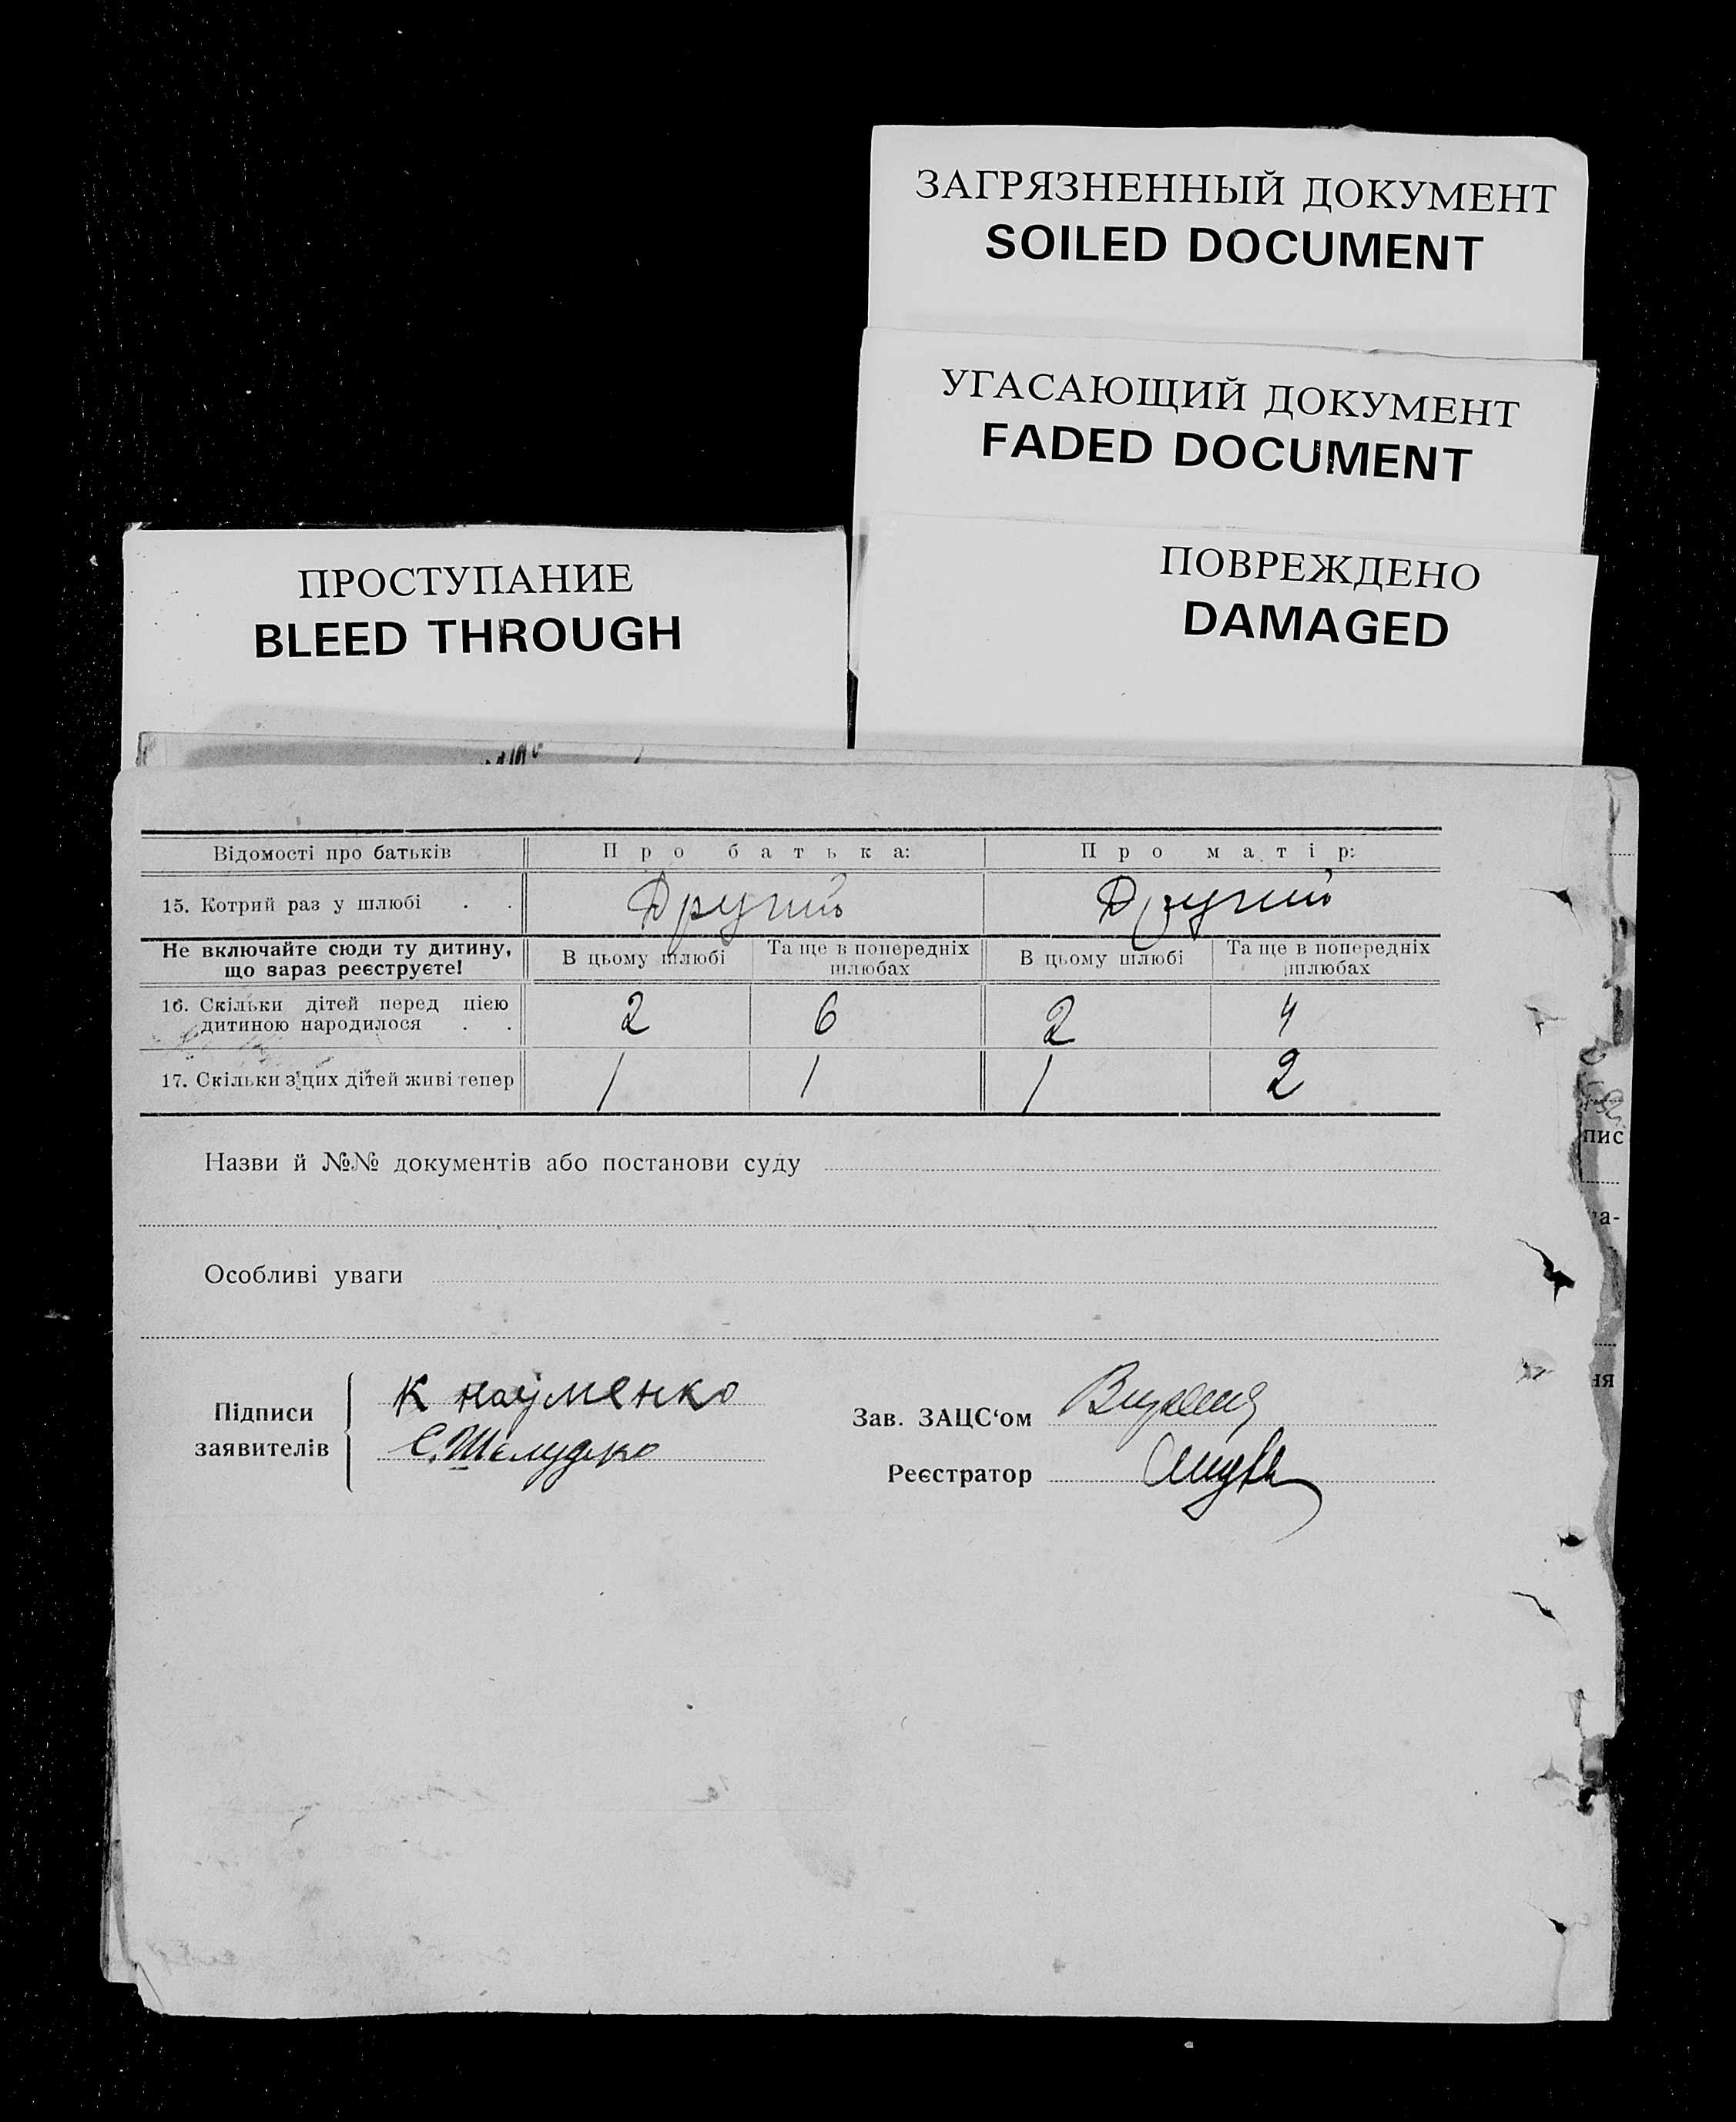 ЗАГРЯЗНЕННЫЙ ДОКУМЕНТ
SOILED DOCUMENT
УГАСАЮЩИЙ ДОКУМЕНТ
FADED DOCUMENT
ПОВРЕЖДЕНО
DAMAGED
ПРОСТУПАНИЕ
BLEED THROUGH
Відомості про батьків Про батька: Про матір:
15. Котрий раз у шлюбі . . Другий Другий
Не включайте сюди ту дитину, що зараз реєструєте! В цьому шлюбі Та ще в попередніх шлюбах В цьому шлюбі Та ще в попередніх шлюбах
16. Скільки дітей перед цією дитиною народилося . . 2 6 2 4
17. Скільки з цих дітей живі тепер 1 1 1 2
Назви й №№ документів або постанови суду
Особливі уваги
Підписи заявителів
К Науменко
С. Шелудько
Зав. ЗАЦС‘ом
Реєстратор
пис
а-
ня